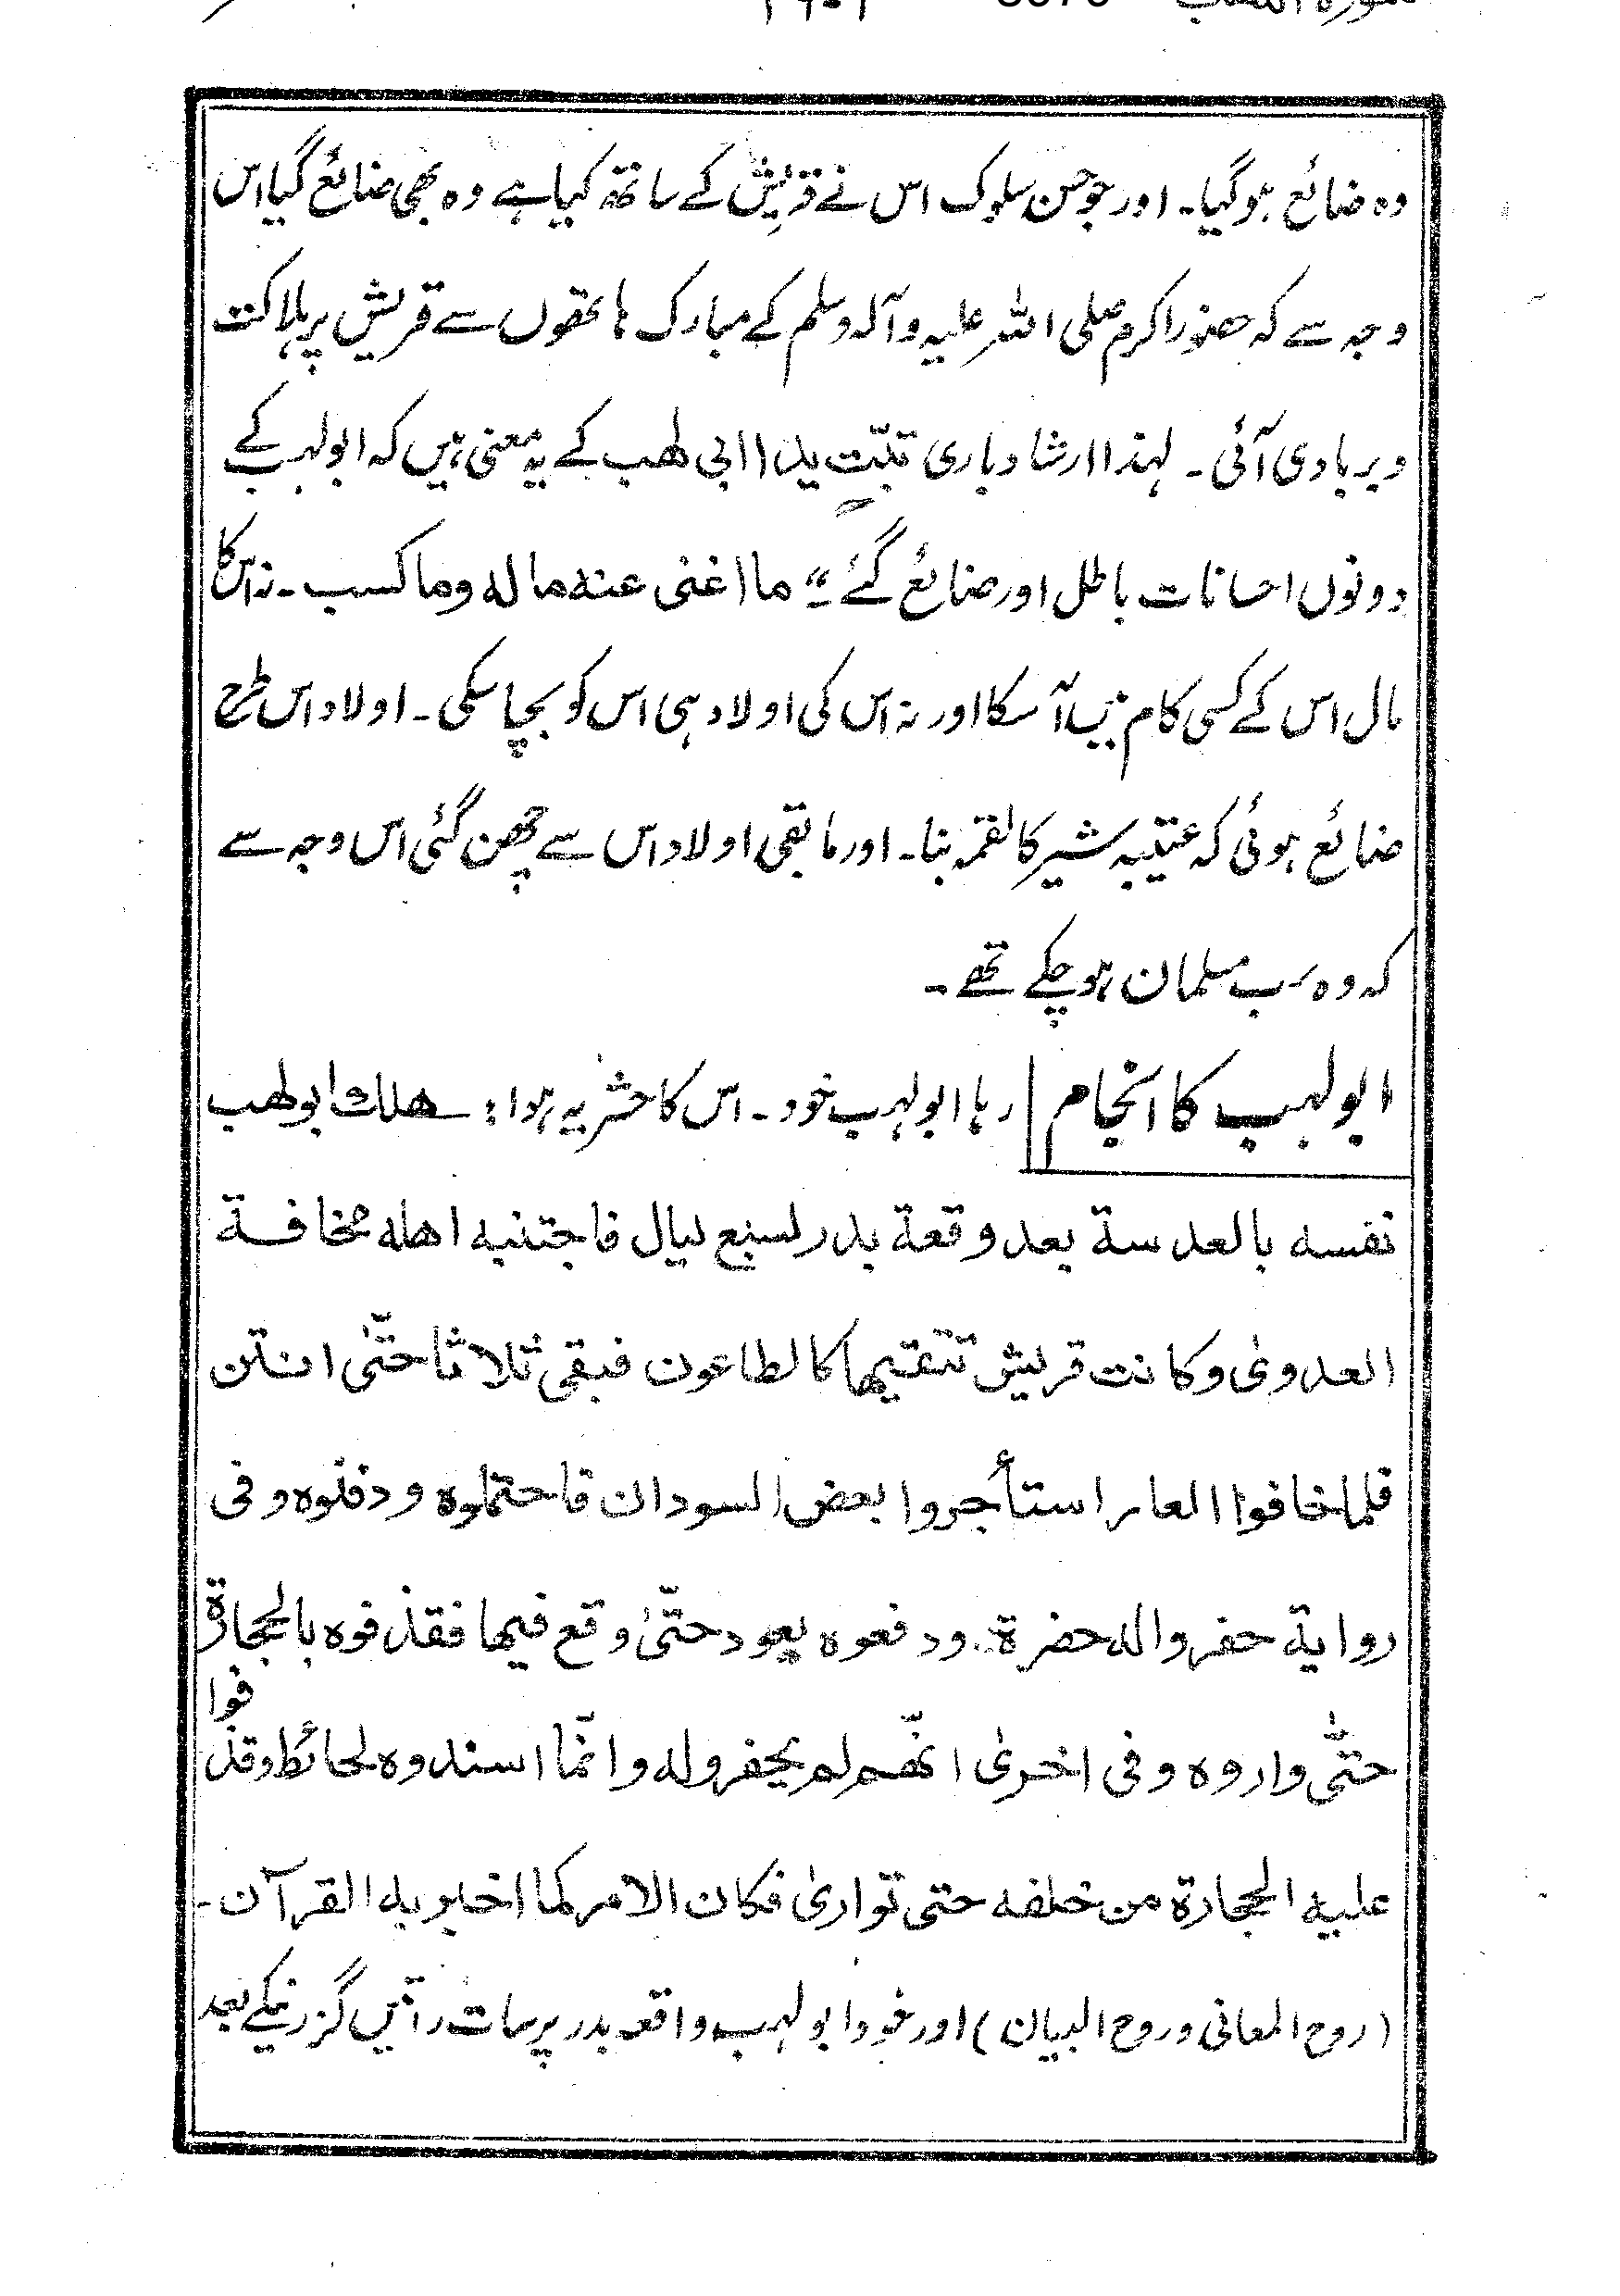 وہ ضائع ہوگیا۔ اور جو حسن سلوک اس نے قریش کے ساتھ کیا ہے وہ بھی ضائع گیا اس
وجہ سے کہ حضور اکرم صلی اللہ علیہ وآلہ وسلم کے مبارک ہاتھوں سے قریش پر ہلاکت
و بربادی آئی۔ لہذا ارشاد باری تبّت یدا ابی لھب کے یہ معنی ہیں کہ ابولہب کے
دونوں احسانات باطل اور ضائع گئے" ما اغنی عنه ماله وما کسب۔ نہ اس کا
مال اس کے کسی کام میں آسکا اور نہ اس کی اولاد ہی اس کو بچا سکی۔ اولاد اس طرح
ضائع ہوئی کہ عتیبہ شیر کا لقمہ بنا۔ اور مابقی اولاد اس سے چھن گئی اس وجہ سے
کہ وہ سب مسلمان ہو چکے تھے۔
ابولہب کا انجام رہا ابولہب خود۔ اس کا حشر یہ ہوا: هلك ابولهب
نفسه بالعدسة بعد وقعة بدر لسبع لیال فاجتنبه اهله مخافة
العدویٰ وکانت قریش تتقیها کالطاعون فبقی ثلاثا حتّیٰ انتن
فلما خافوا العار استأجروا بعض السودان فاحتملوه ودفنوه وفی
روایة حفروا له حضرة ودفعوه بعود حتّیٰ وقع فیها فقذفوه بالحجارة
حتّی واروه وفی اخریٰ انّهم لم یحفروا له وانّما اسندوه لحائط وقذفوا
علیه الحجارة من خلفه حتی تواریٰ فکان الامر کما اخبر به القرآن۔
(روح المعانی وروح البیان) اور خود ابولہب واقعہ بدر پر سات راتیں گزرنیکے بعد